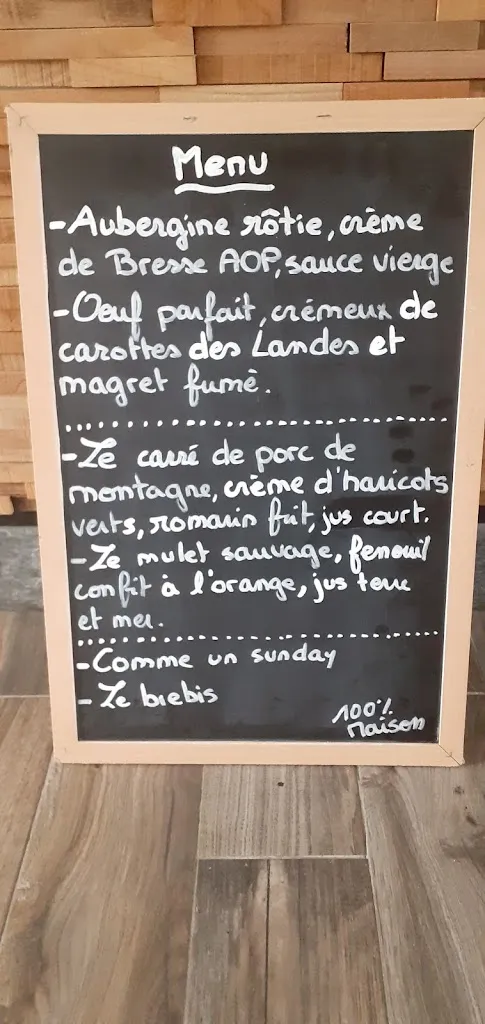 Menu
-Aubergine rôtie, crème
de Bresse AOP, sauce vierge
-Oeuf parfait, crémeux de
carottes des Landes et
magret fumé.
-Le carré de porc de
montagne, crème d'haricots
verts, romarin frit, jus court.
-Le mulet sauvage, fenouil
confit à l'orange, jus terre
et mer.
-Comme un sunday
-Le brebis
100%
Maison